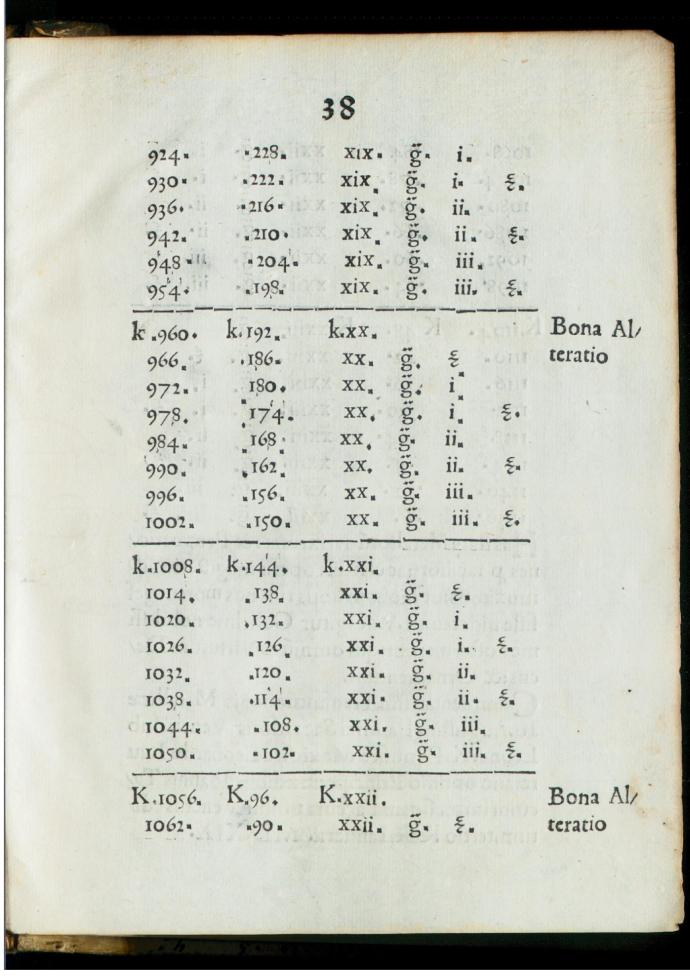 38
924. .228. xix. g̃. i.
930. .222. xix. g̃. i. ξ.
936. .216. xix. g̃. ii.
942. .210. xix. g̃. ii. ξ.
948. .204. xix. g̃. iii.
954. .198. xix. g̃. iii. ξ.
k.960. k.192. k.xx. Bona Al/
966. .186. xx. g̃. ξ teratio
972. .180. xx. g̃. i
978. .174. xx. g̃. i. ξ.
984. .168. xx. g̃. ii.
990. .162. xx. g̃. ii. ξ.
996. .156. xx. g̃. iii.
1002. .150. xx. g̃. iii. ξ.
k.1008. k.144. k.xxi.
1014. .138. xxi. g̃. ξ.
1020. .132. xxi. g̃. i.
1026. .126. xxi. g̃. i. ξ.
1032. .120. xxi. g̃. ii.
1038. .114. xxi. g̃. ii. ξ.
1044. .108. xxi. g̃. iii.
1050. .102. xxi. g̃. iii. ξ.
K.1056. K.96. K.xxii. Bona Al/
1062. .90. xxii. g̃. ξ. teratio